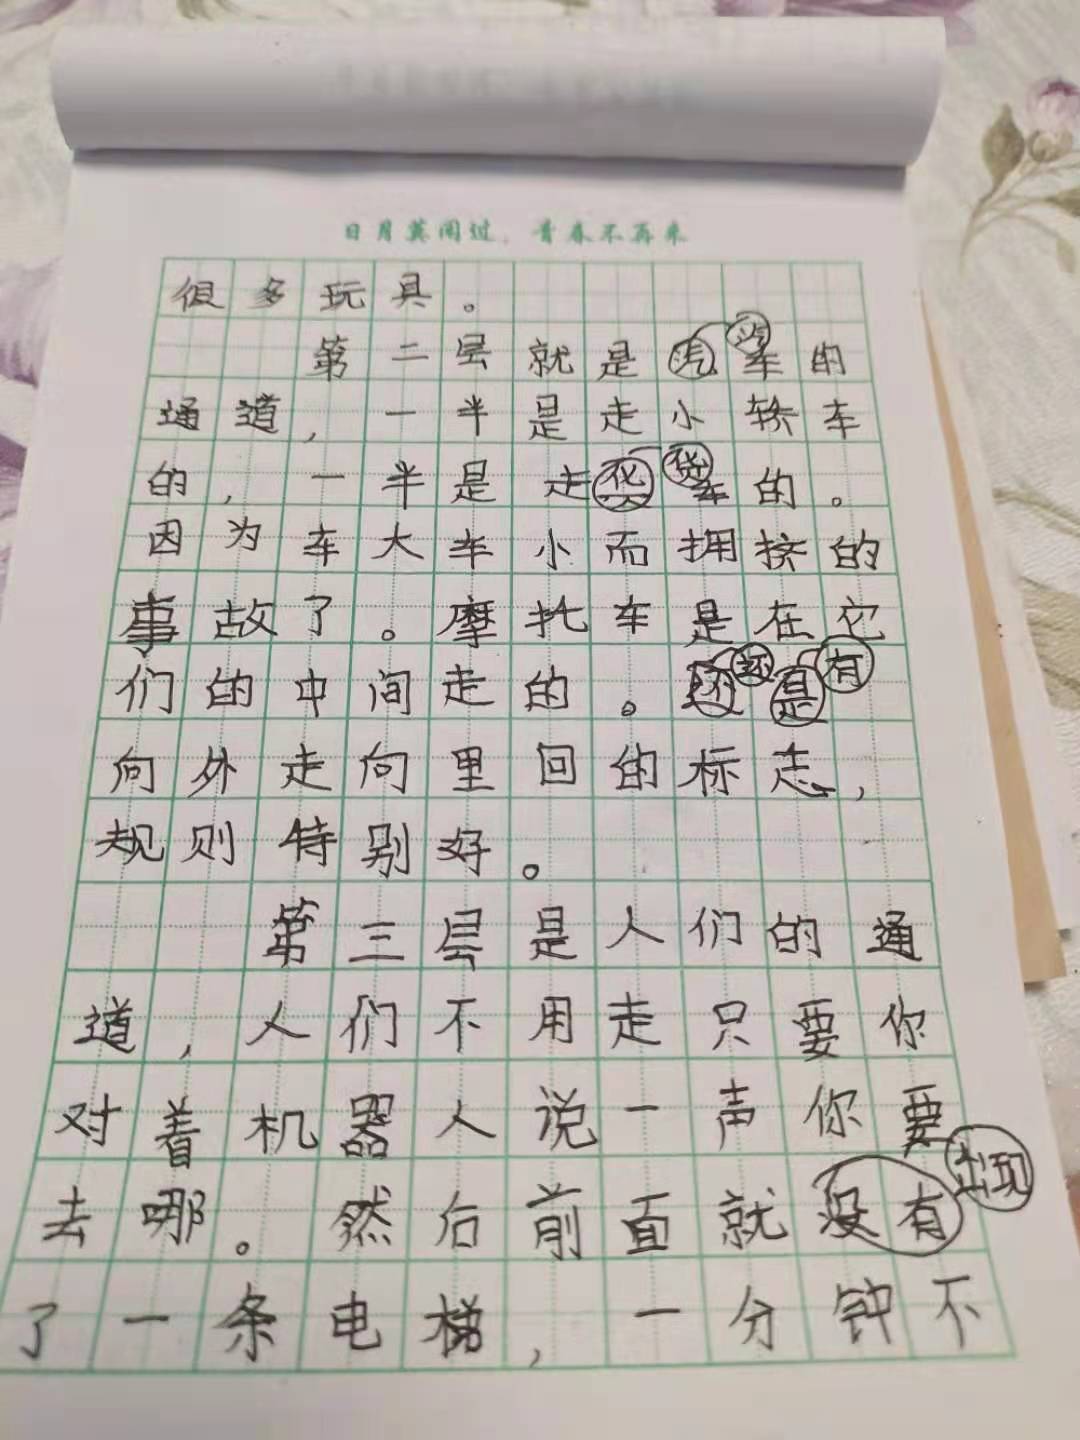 日月莫闲过，青春不再来
很多玩具。
第二层就是汽汽车的
通道，一半是走小轿车
的，一半是走货货车的。
因为车大车小而拥挤的
事故了。摩托车是在它
们的中间走的。还还是有
向外走向里回的标志，
规则特别好。
第三层是人们的通
道，人们不用走只要你
对着机器人说一声你要
出现
去哪。然后前面就没有
了一条电梯，一分钟不